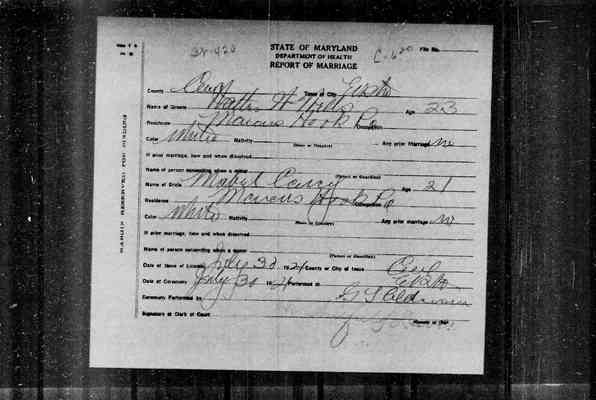 STATE OF MARYLAND
DEPARTMENT OF HEALTH
REPORT OF MARRIAGE
File No.
County Cecil Town or City
Name of Groom Walter H Age 23
Residence Marcus Hook Pa Occupation
Color White Nativity (State or Country) Any prior Marriage no
If prior marriage, how and when dissolved
Name of person consenting when a minor (Parent or Guardian)
Name of Bride Mabel Age 21
Residence Marcus Hook Pa Occupation
Color White Nativity (State or Country) Any prior marriage no
If prior marriage, how and when dissolved
Name of person consenting when a minor (Parent or Guardian)
Date of Issue of License July 30 1924 County or City of Issue Cecil
Date of Ceremony July 30 1924 Performed at Elkton
Ceremony Performed by
Signature of Clerk of Court
MARGIN RESERVED FOR BINDING